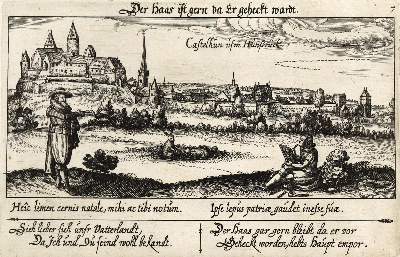 Der Haas ist gern da Er geheckt wardt.
7
Castelhun ufm Hunsrück
Heic limen cernis natale, mihi ac tibi notum.
Ipse lepus patriæ gaudet inesse suæ.
Sieh lieber sieh unser Vatterlandt,
Da Ich und Du seind wohl bekandt.
Der Haas gar gern bleibt da er vor
Geheckt worden, hebts Haupt empor.